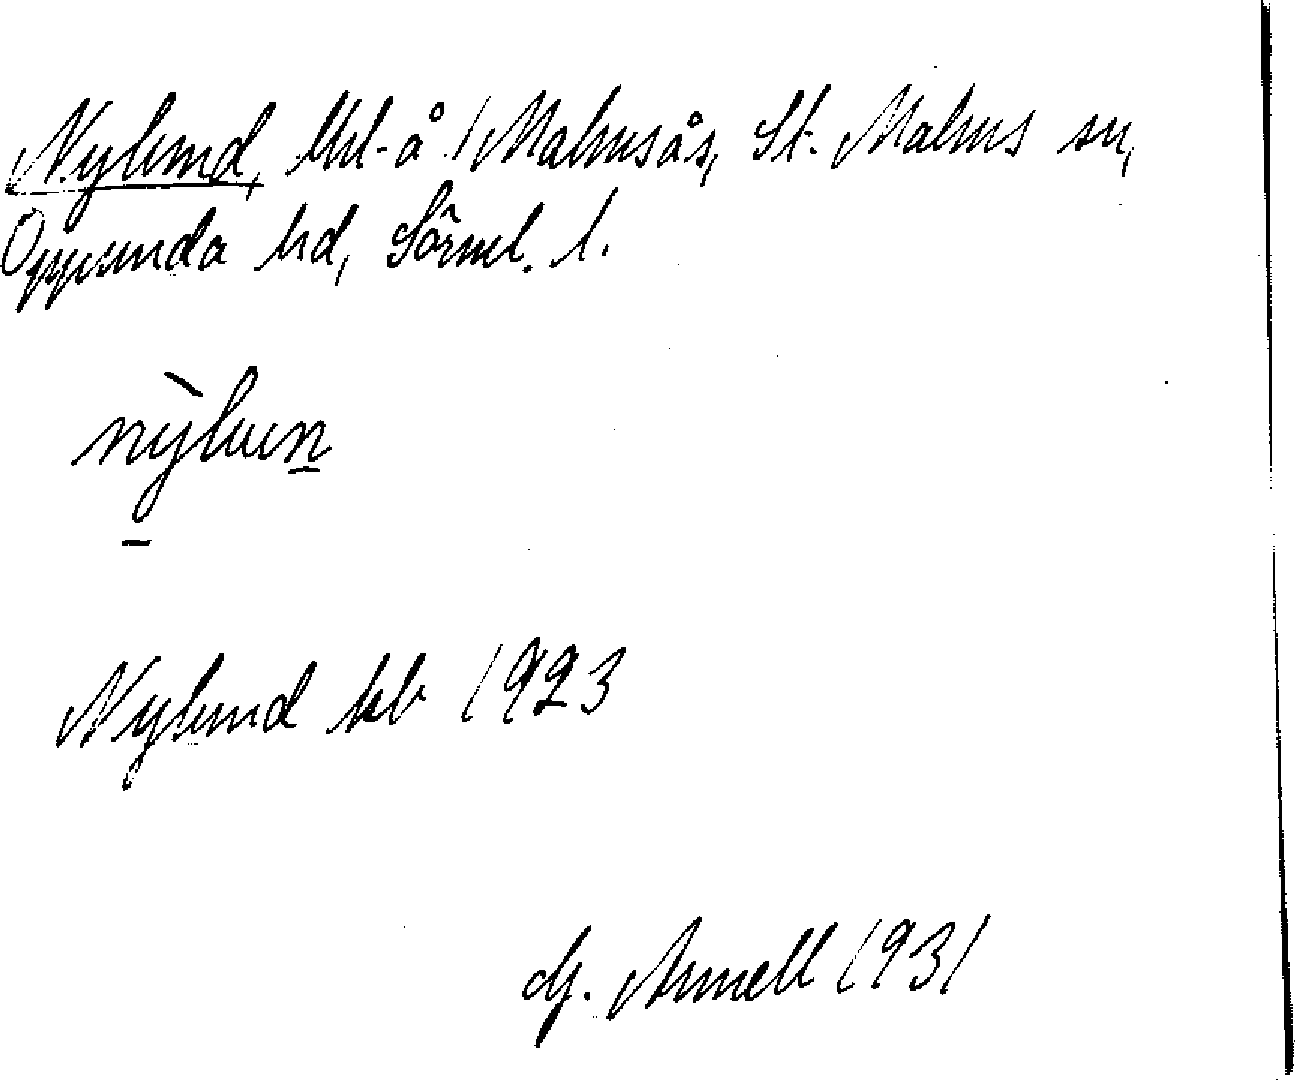 Nylund, lht å /Malmsås, St. Malms sn,
Oppunda hd, Sörml. l.
nỳlunn
Nylund kb 1923
G. Arnell 1931